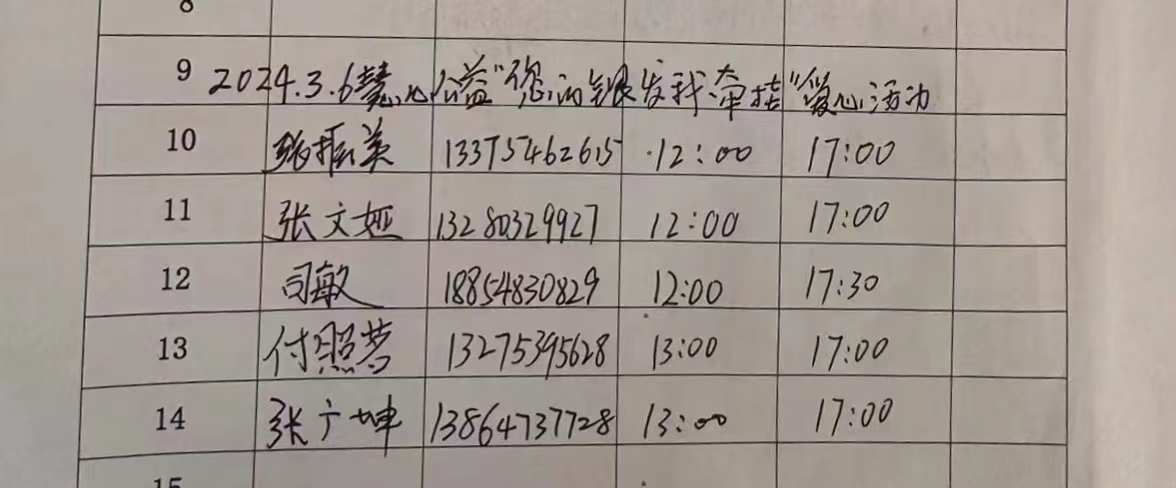 8
9 2024.3.6慧心公益"您的银发我牵挂"爱心活动
10 张振美 13375462615 12:00 17:00
11 张文娅 13280329927 12:00 17:00
12 司敏 18854830829 12:00 17:30
13 付照营 13275395628 13:00 17:00
14 张广坤 13864737728 13:00 17:00
15